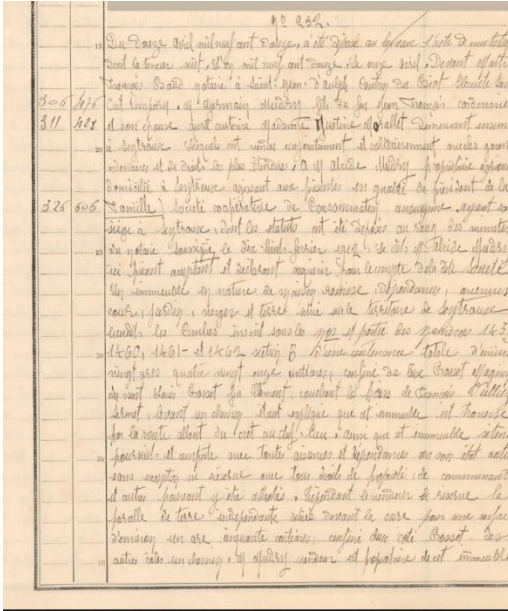 N° 232.
Du douze avril mil neuf cent douze, a été déposé au bureau l'acte de mutation
dont la teneur suit. L'an mil neuf cent douze, le onze avril, Devant Maître
François Baud notaire à Saint-Jean-d'Aulph canton du Biot Haute Sav
306 416 Ont comparu, M. Germain Mudry fils de feu Jean François cordonnier
311 427 et son épouse qu'il autorise Madame Justine Morallet demeurant ensemble
à Seytroux lesquels ont vendu conjointement et solidairement avec les garanties
ordinaires et de droit les plus étendues, à M Alcide Mudry, propriétaire agricul
domicilié à Seytroux agissant aux présentes en qualité de président de la
326 606 Famille) société coopérative de Consommation anonyme, ayant son
siège à Seytroux, dont les statuts ont été déposés au rang des minutes
du notaire soussigné le dix-huit février 1912, ce dit M Alcide Mudry
ici présent acceptant et déclarant acquérir pour le compte de la dite Société
Un immeuble en nature de maison remise, dépendances, avenues
cour, jardin, verger et terre situé sur le territoire de Seytroux
lieudit les inscrit sous les nos et partie des numéros 145
1460, 1461 et 1462 section B d'une contenance totale d'environ
vingt ares quatre vingt onze centiares, confiné de bise Crosset
du vent Louis Crosset feu Clément, couchant les hoirs de François
levant un chemin étant expliqué que cet immeuble est traversé
par la route allant du crêt au chef-lieu, ainsi que cet immeuble
poursuit et comporte avec toutes aisances et dépendances ou son état actuel
sans exception ni réserve avec tous droits de propriété, de communauté
et autres pouvant y être attachés. Cependant le vendeur se réserve la
parcelle de terre indépendante située devant la cure pour une surface
d'environ un are cinquante centiares, confiné d'un côté Crosset des
autres côtés un chemin, M Mudry vendeur est propriétaire de cet immeuble